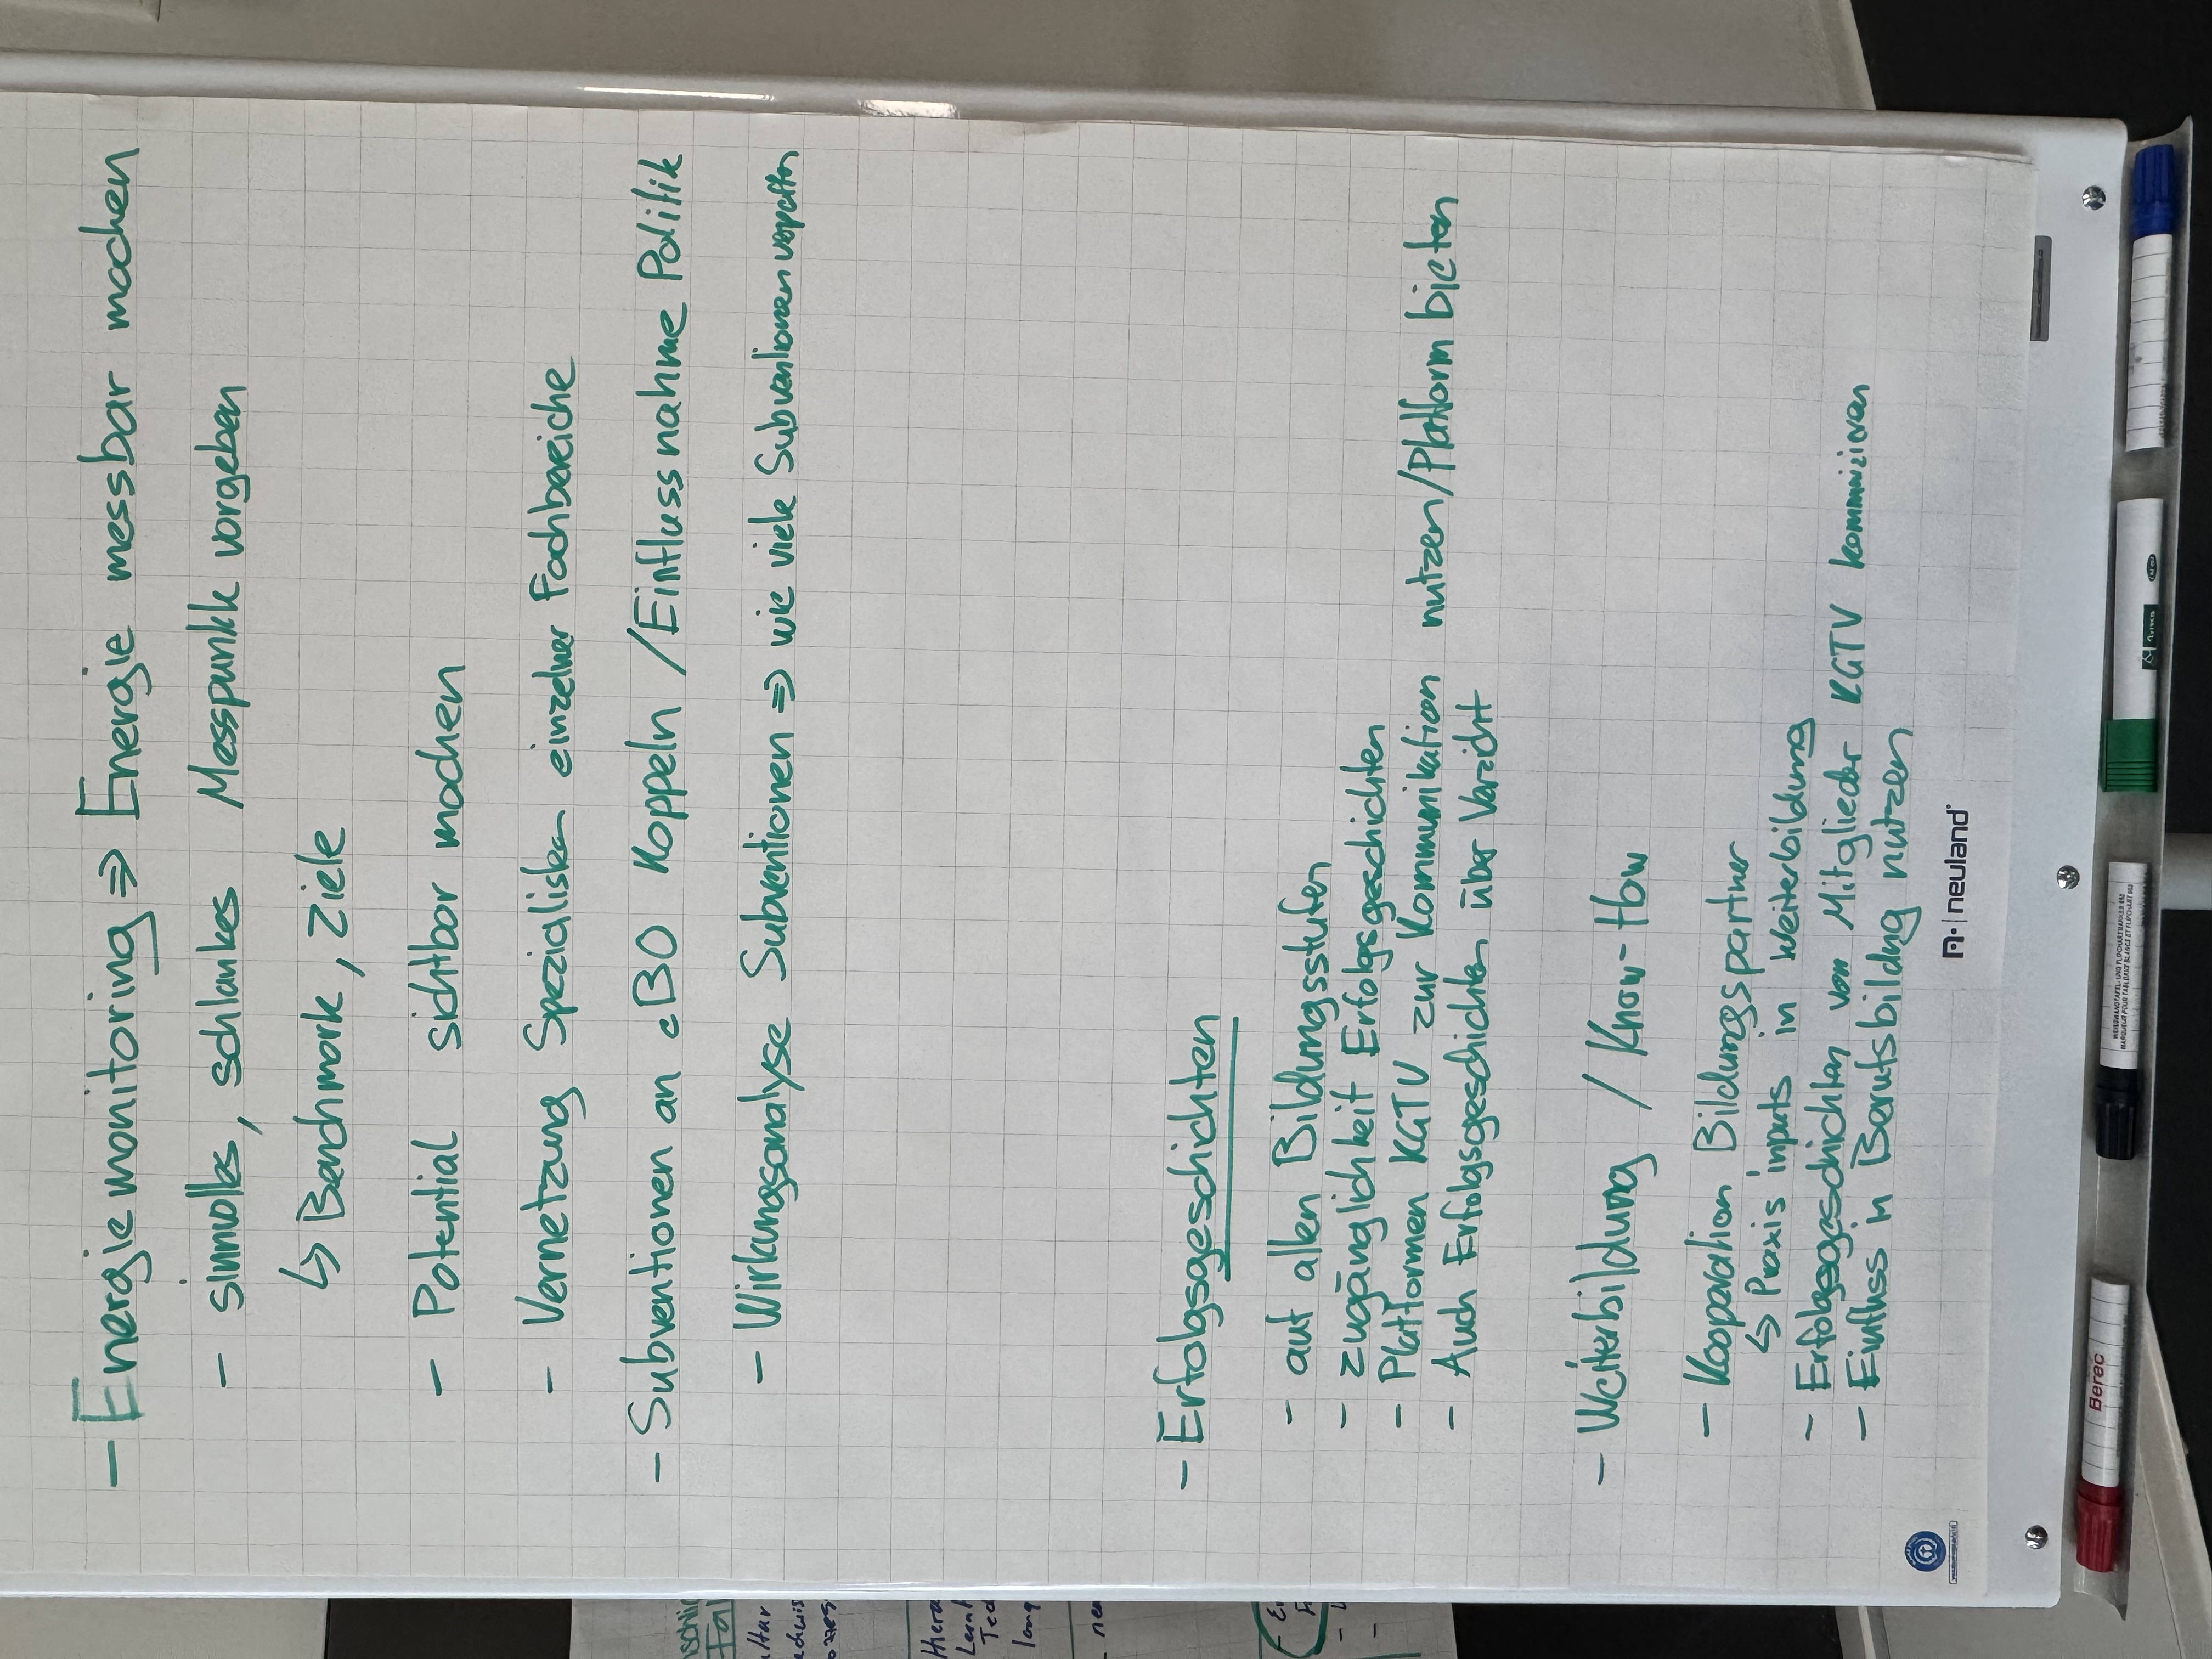 - Energiemonitoring => Energie messbar machen
- sinnvolles, schlankes Messpunkte vorgeben
↳ Benchmark, Ziele
- Potential sichtbar machen
- Vernetzung Spezialisten einzelner Fachbereiche
- Subventionen an eBO koppeln / Einflussnahme Politik
- Wirkungsanalyse Subventionen => wie viele Subventionen verpuffen
- Erfolgsgeschichten
- auf allen Bildungsstufen
- Zugänglichkeit Erfolgsgeschichten
- Plattformen KGTV zur Kommunikation nutzen/Platform bieten
- Auch Erfolgsgeschichten über Verzicht
- Weiterbildung / Know-How
- Kooperation Bildungspartner
↳ Praxis inputs in Weiterbildung
- Erfolgsgeschichten von Mitglieder KGTV kommunizieren
- Einfluss in Berufsbildung nutzen
neuland
Berec